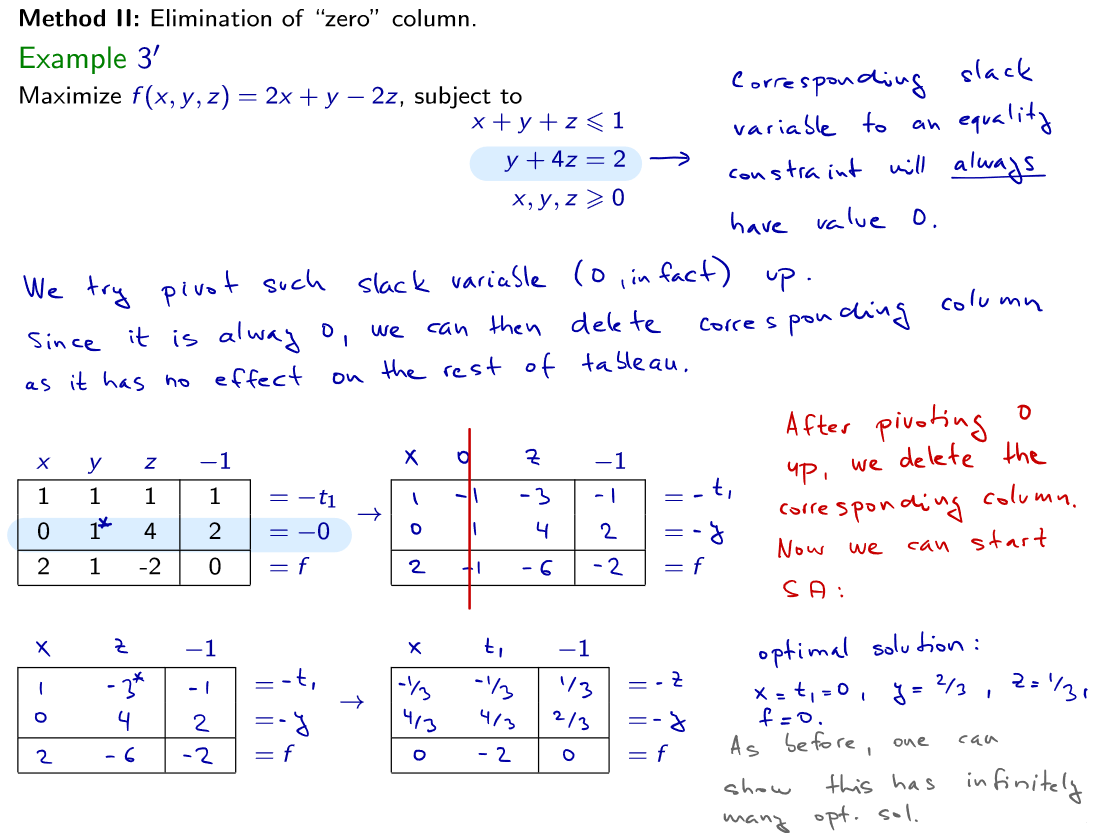 Method II: Elimination of “zero” column.
Example 3′
Maximize f(x, y, z) = 2x + y − 2z, subject to
x + y + z ⩽ 1
y + 4z = 2 →
x, y, z ⩾ 0
Corresponding slack
variable to an equality
constraint will always
have value 0.
We try pivot such slack variable (0, in fact) up.
Since it is alway 0, we can then delete corresponding column
as it has no effect on the rest of tableau.
x y z −1
1 1 1 1 = −t₁
0 1* 4 2 = −0
2 1 -2 0 = f
→
x 0 z −1
1 -1 -3 -1 = -t₁
0 1 4 2 = -y
2 -1 -6 -2 = f
After pivoting 0
up, we delete the
corresponding column.
Now we can start
SA:
x z −1
1 -3* -1 = -t₁
0 4 2 = -y
2 -6 -2 = f
→
x t₁ −1
-1/3 -1/3 1/3 = -z
4/3 4/3 2/3 = -y
0 -2 0 = f
optimal solution:
x = t₁ = 0, y = 2/3, z = 1/3,
f = 0.
As before, one can
show this has infinitely
many opt. sol.